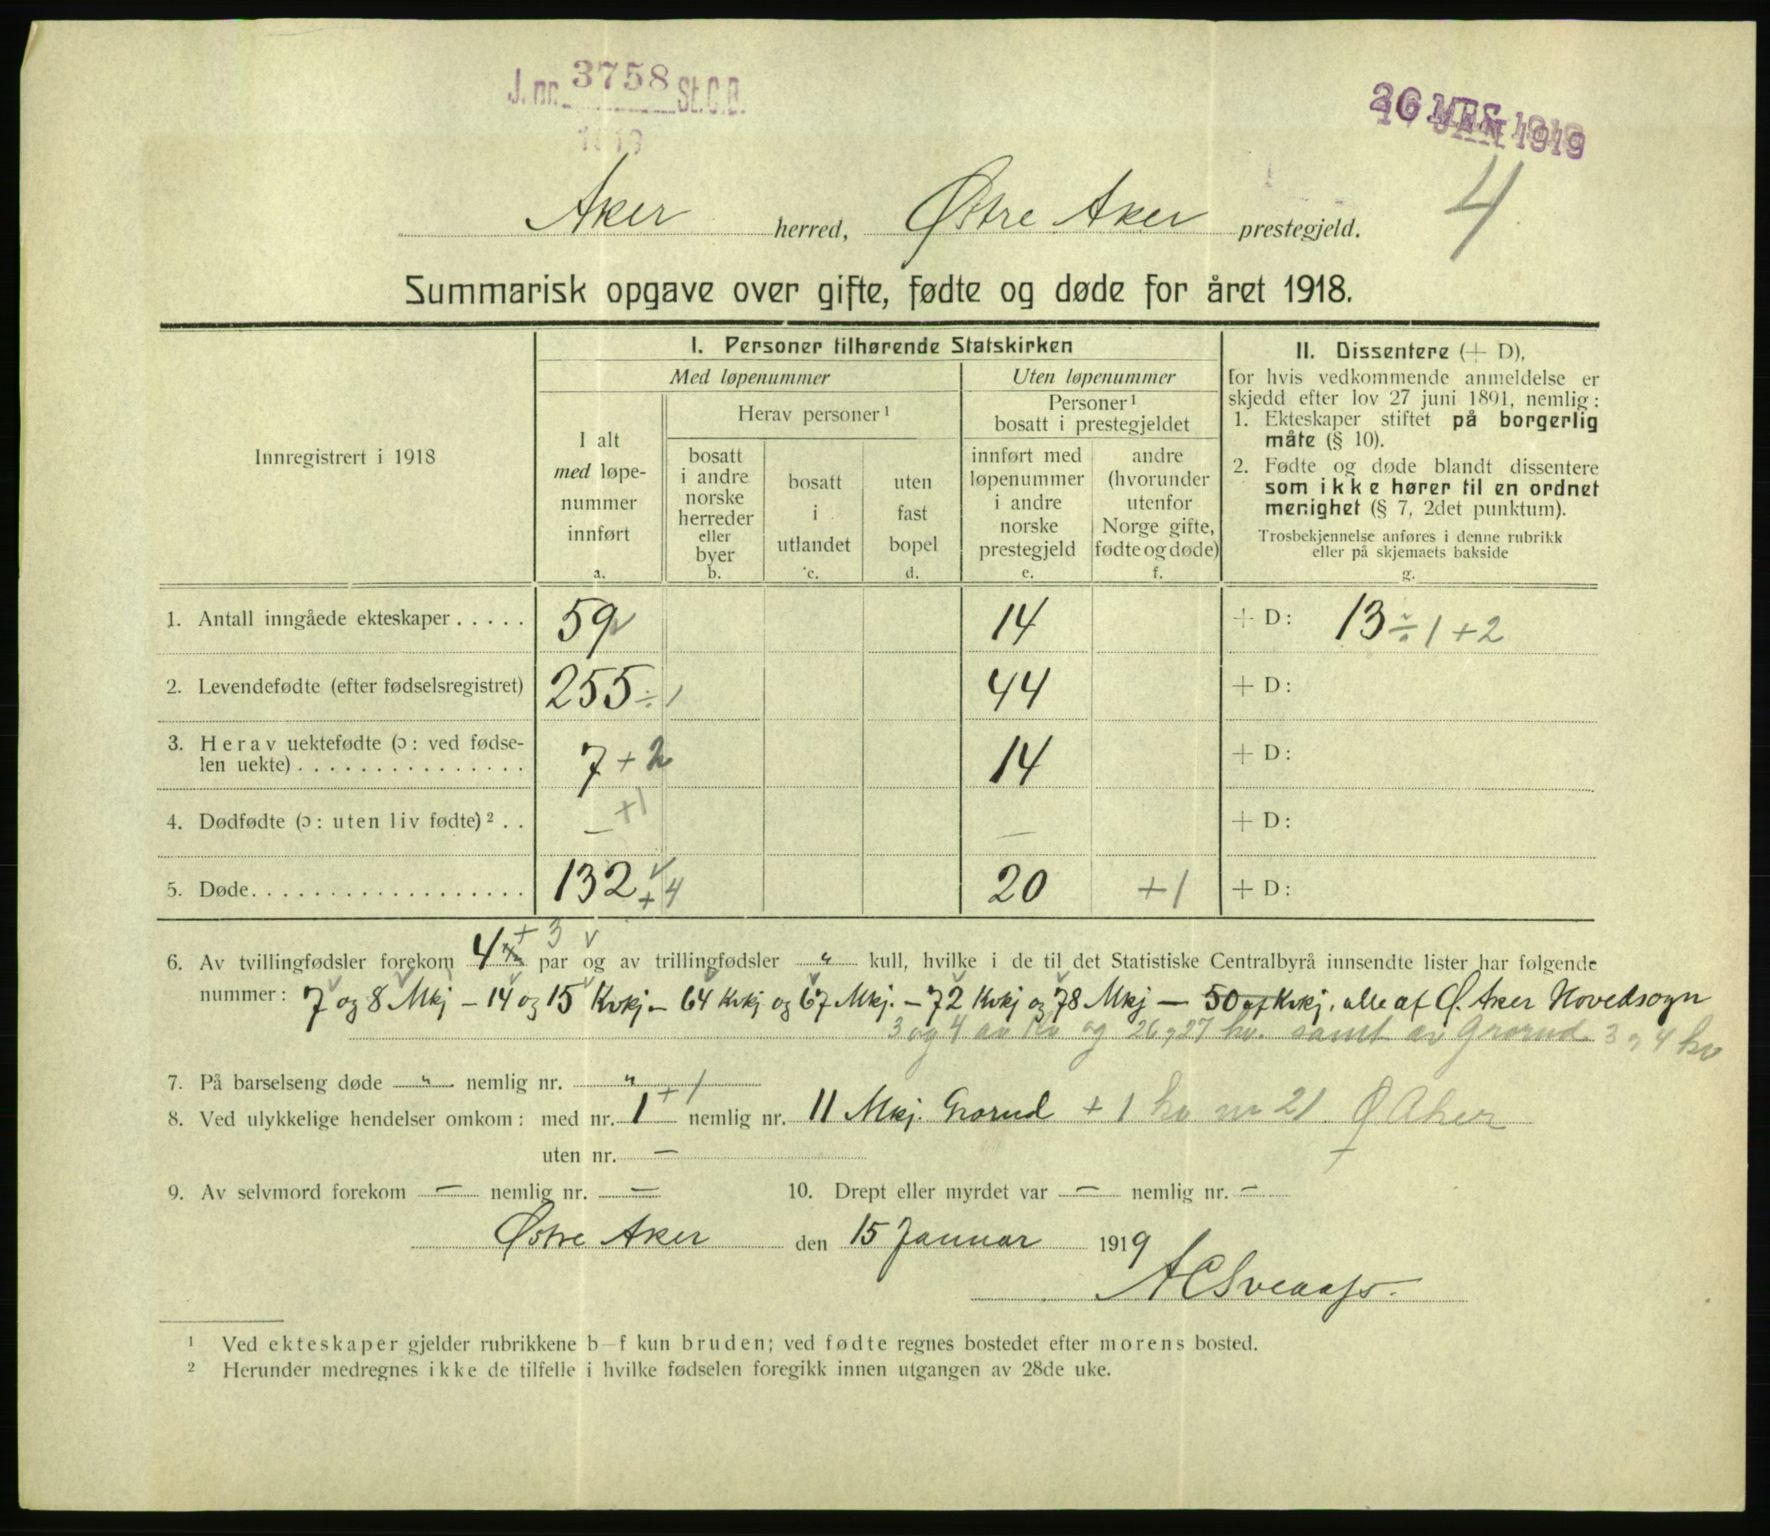 J. nr. 3758 St.C.B.
1919
1919
Aker herred, Østre Aker prestegjeld.
4
Summarisk opgave over gifte, fødte og døde for året 1918.
Innregistrert i 1918
I. Personer tilhørende Statskirken
Med løpenummer
Uten løpenummer
I alt
med løpe-
nummer
innført
a.
Herav personer ¹
bosatt
i andre
norske
herreder
eller
byer
b.
bosatt
i
utlandet
c.
uten
fast
bopel
d.
Personer ¹
bosatt i prestegjeldet
innført med
løpenummer
i andre
norske
prestegjeld
e.
andre
(hvorunder
utenfor
Norge gifte,
fødte og døde)
f.
II. Dissentere (+ D),
for hvis vedkommende anmeldelse er
skjedd efter lov 27 juni 1891, nemlig:
1. Ekteskaper stiftet på borgerlig
måte (§ 10).
2. Fødte og døde blandt dissentere
som ikke hører til en ordnet
menighet (§ 7, 2det punktum).
Trosbekjennelse anføres i denne rubrikk
eller på skjemaets bakside
g.
1. Antall inngåede ekteskaper . . . . . 59 14 + D: 13 ÷ 1 + 2
2. Levendefødte (efter fødselsregistret) 255 ÷ 1 44 + D:
3. Herav uektefødte (ɔ: ved fødse-
len uekte) . . . . . . . . . . . . . . . 7 + 2 14 + D:
4. Dødfødte (ɔ: uten liv fødte) ² . . — +1 — + D:
5. Døde . . . . . . . . . . . . . . . . . . 132 + 4 20 +1 + D:
6. Av tvillingfødsler forekom 4 + 3 par og av trillingfødsler „ kull, hvilke i de til det Statistiske Centralbyrå innsendte lister har følgende
nummer: 7 og 8 Mkj — 14 og 15 Kvkj — 64 Kvkj og 67 Mkj. — 72 Kvkj og 78 Mkj — 50 af Kvkj. alle af Ø. Aker Hovedsogn
3 og 4 av og 26 og 27 kv. samt av Grorud 3 og 4 kv
7. På barselseng døde „ nemlig nr. „ + 1
8. Ved ulykkelige hendelser omkom: med nr. 1 nemlig nr. 11 Mkj. Grorud + 1 kv nr 21 Ø Aker
uten nr. —
9. Av selvmord forekom — nemlig nr. — 10. Drept eller myrdet var — nemlig nr. —
Østre Aker den 15 Januar 1919
¹ Ved ekteskaper gjelder rubrikkene b—f kun bruden; ved fødte regnes bostedet efter morens bosted.
² Herunder medregnes ikke de tilfelle i hvilke fødselen foregikk innen utgangen av 28de uke.